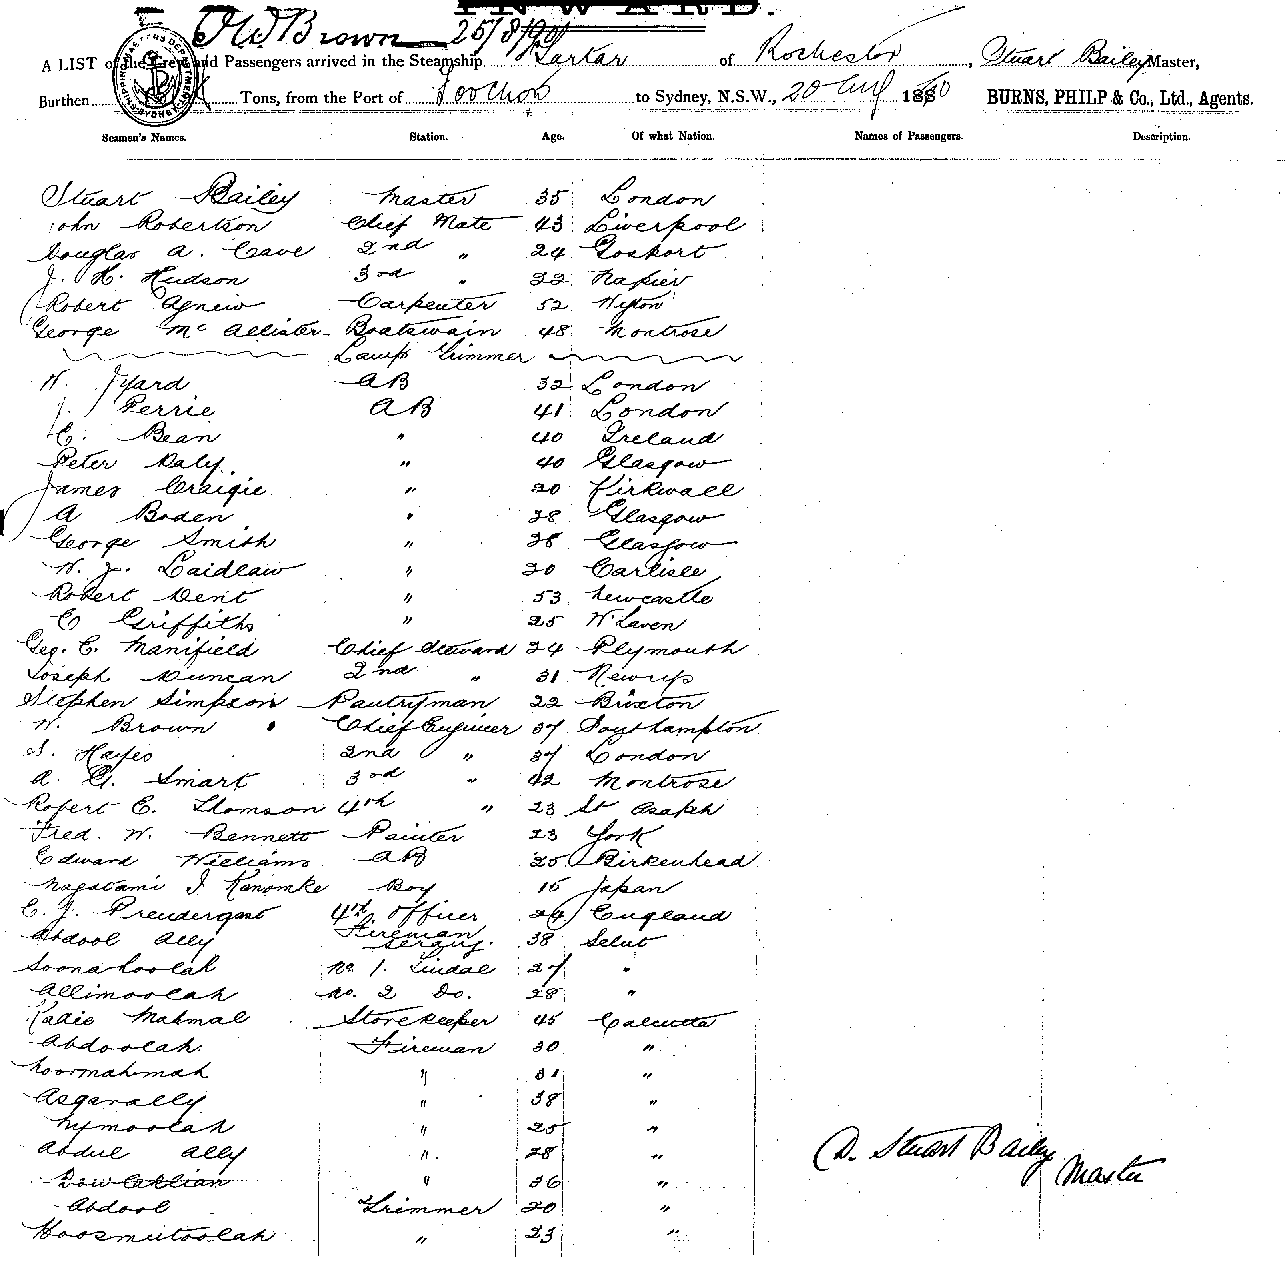 INWARD.
F W Brown 25/8/90
A LIST of the Crew and Passengers arrived in the Steamship Tartar of Rochester, Stuart Bailey Master,
Burthen Tons, from the Port of Foochow to Sydney, N.S.W., 20 Aug 1890 BURNS, PHILP & Co., Ltd., Agents.
Seamen's Names. Station. Age. Of what Nation. Names of Passengers. Description.
Stuart Bailey Master 35 London
John Robertson Chief Mate 43 Liverpool
Douglas A. Cave 2nd " 24 Gosport
J. H. Hudson 3rd " 22 Napier
Robert Agnew Carpenter 52
George McAllister Boatswain 48 Montrose
Lamp Trimmer
W. J Yard AB 32 London
J. Ferrie AB 41 London
C. Bean " 40 Ireland
Peter Daly " 40 Glasgow
James Craigie " 20 Kirkwall
A Boden " 28 Glasgow
George Smith " 28 Glasgow
W. J. Laidlaw " 20 Carlisle
Robert Dent " 53 Newcastle
C Griffiths " 25 W'haven
Geo. C. Manifield Chief Steward 24 Plymouth
Joseph Duncan 2nd " 31 Newry
Stephen Simpson Pantryman 22 Brixton
W. Brown Chief Engineer 37 Southampton
S. Hayes 2nd " 37 London
A. G. Smart 3rd " 42 Montrose
Robert E. Thomson 4th " 23 St Asaph
Fred. W. Bennett Painter 23 York
Edward Williams AB 25 Birkenhead
Boy 15 Japan
C. J. Prendergast 4th Officer 24 England
Abdool Ally Fireman Serang. 38 Selut
Soonahoolah No. 1. Tindal 27 "
Allimoolah No. 2 Do. 28 "
Kadie Mahmal Storekeeper 45 Calcutta
Abdoolah Fireman 30 "
Noormahmah " 31 "
Asgerally " 38 "
Nymoolah " 25 "
Abdul Ally " 28 "
" 36 "
Abdool Trimmer 20 "
Moosmutoolah " 23 "
D. Stuart Bailey
Master